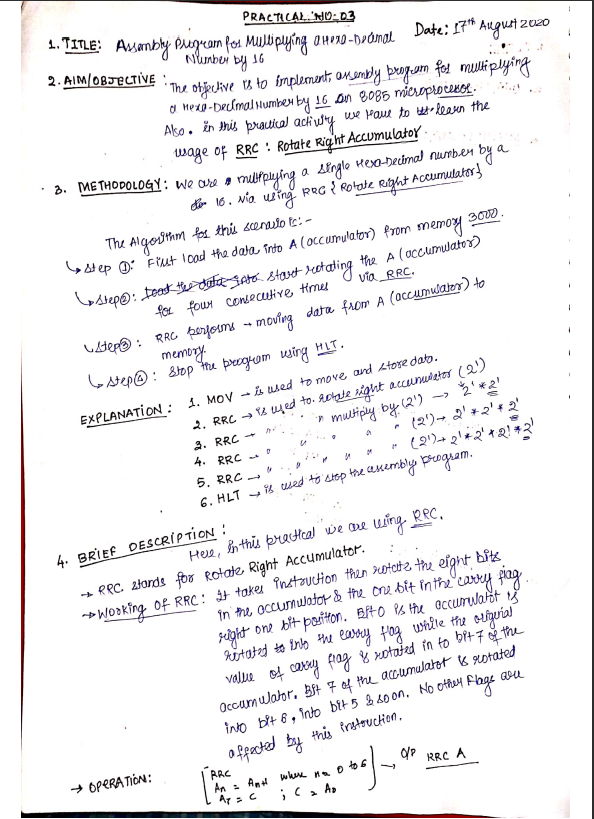 PRACTICAL NO-03
Date: 17th August 2020
1. TITLE: Assembly Program for Multiplying a Hexa-Decimal
Number by 16
2. AIM/OBJECTIVE : The objective is to implement assembly program for multiplying
a Hexa-Decimal Number by 16 on 8085 microprocessor.
Also. in this practical activity we have to learn the
usage of RRC : Rotate Right Accumulator
3. METHODOLOGY: We are multiplying a single Hexa-Decimal number by a
16. via using RRC { Rotate Right Accumulator}
The Algorithm for this scenario is:-
↳ Step ①: First load the data into A (accumulator) from memory 3000.
↳ Step②: Load the data into start rotating the A (accumulator)
for four consecutive times via RRC.
↳ Step③: RRC performs → moving data from A (accumulator) to
memory.
↳ Step④: Stop the program using HLT.
EXPLANATION : 1. MOV → is used to move and store data.
2. RRC → is used to rotate right accumulator (2¹)
3. RRC → " " " " multiply by (2¹) → 2¹*2¹
4. RRC → " " " " " (2¹)→ 2¹*2¹*2¹
5. RRC → " " " " " (2¹)→ 2¹*2¹*2¹*2¹
6. HLT → is used to stop the assembly program.
4. BRIEF DESCRIPTION :
Here, in this practical we are using RRC.
→ RRC stands for Rotate Right Accumulator.
→ Working of RRC: It takes instruction then rotate the eight bits
in the accumulator & the one bit in the carry flag
right one bit position. Bit 0 is the accumulator is
rotated to into the carry flag while the original
value of carry flag is rotated in to bit 7 of the
accumulator. Bit 7 of the accumulator is rotated
into bit 6, into bit 5 & so on. No other Flags are
affected by this instruction.
→ OPERATION: [ RRC
An = An+1 where n = 0 to 6
A7 = C ; C = A0 ] → O/P RRC A